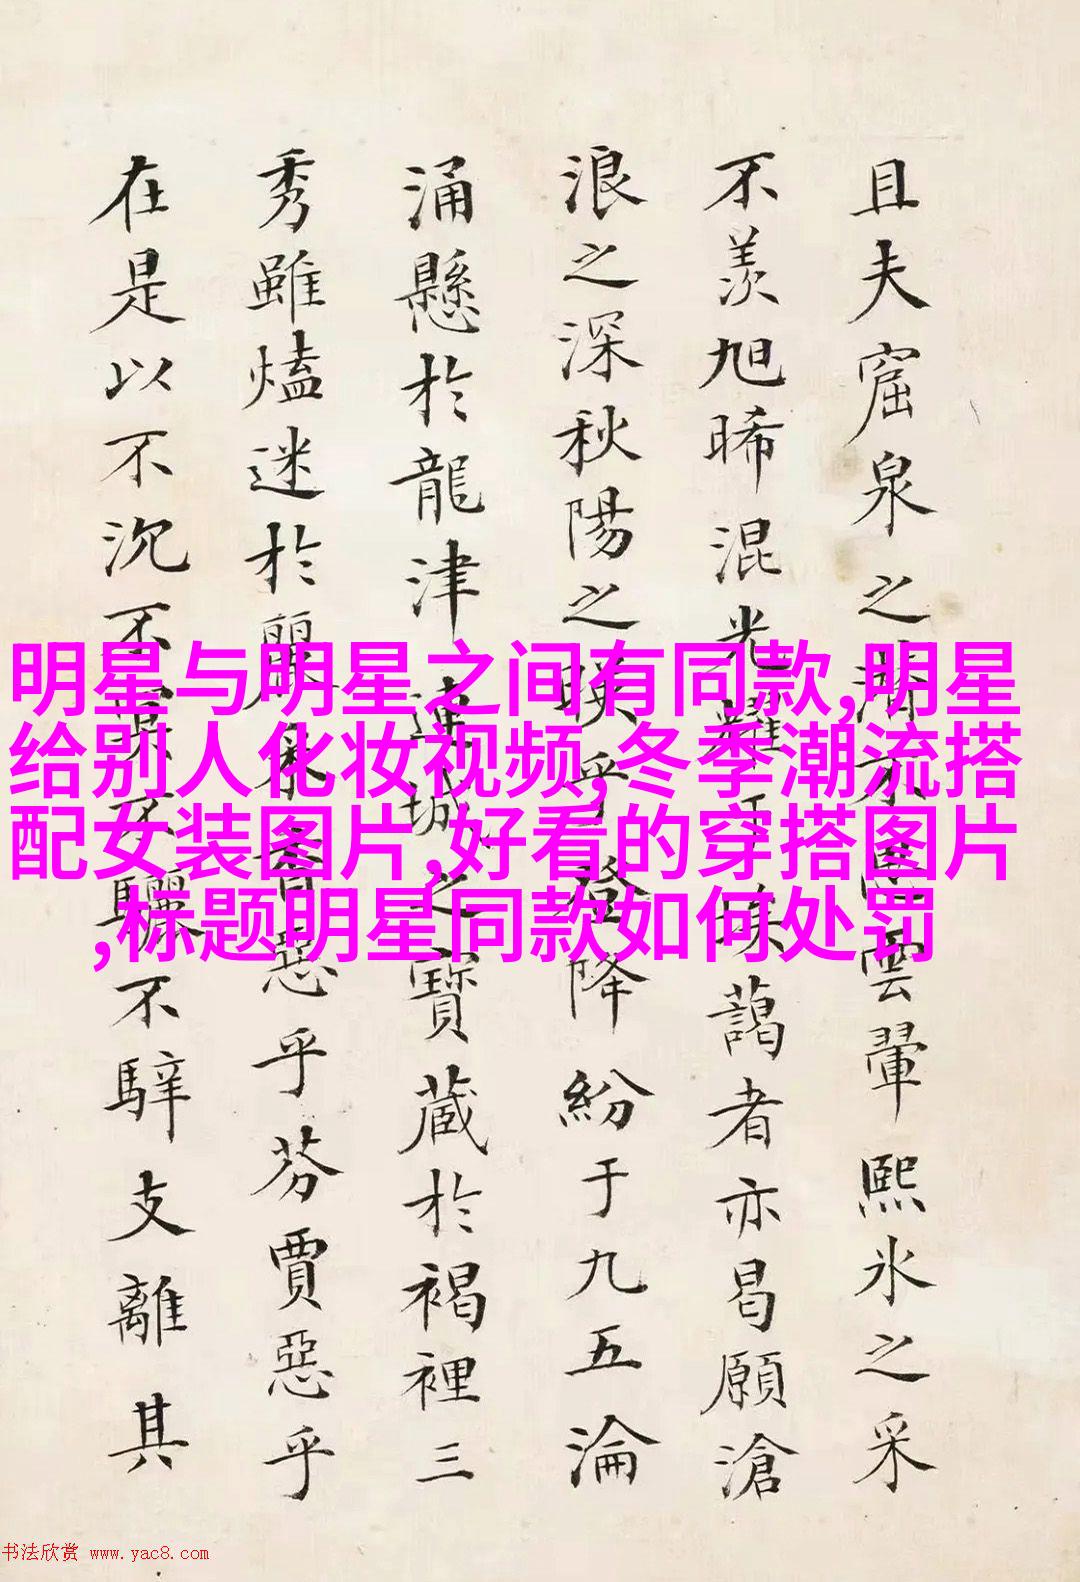 且夫窟泉之雲翬熙氷之采
不羨旭晞混光耀埃藹者亦曷願滄
浪之深秋陽之暎乎登降紛于九五淪
涌懸於龍津連城之寶藏於褐裡三
秀雖迷於麗采香惡乎芬賈惡乎
在是以不沉不冥不驪不騂支離其
明星与明星之间有同款,明星
给别人化妆视频,冬季潮流搭
配女装图片,好看的穿搭图片
,标题明星同款如何处罚
书法欣赏 www.yac8.com